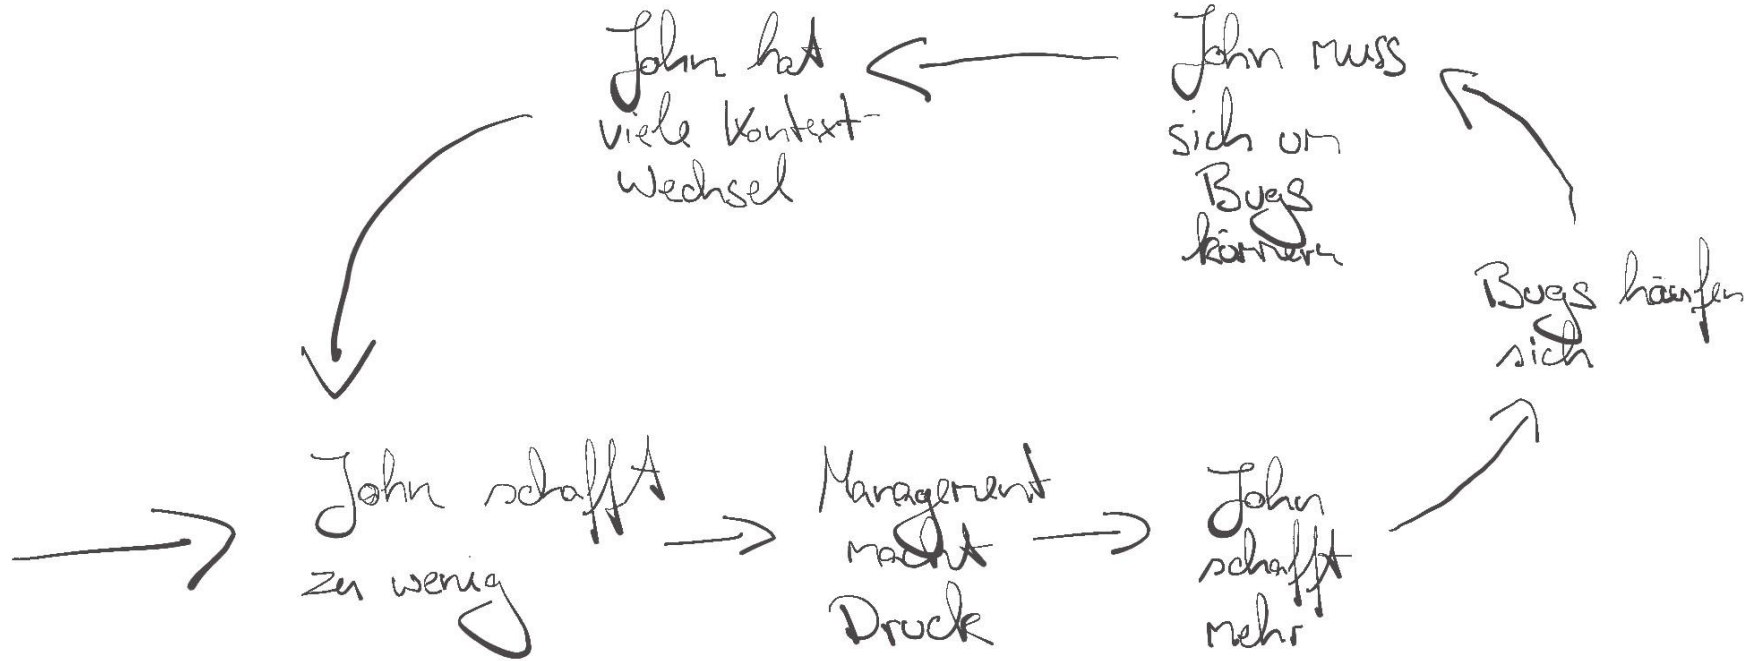 John hat
viele Kontext-
Wechsel
John muss
sich um
Bugs
kümmern
Bugs häufen
sich
John schafft
zu wenig
Management
macht
Druck
John
schafft
mehr